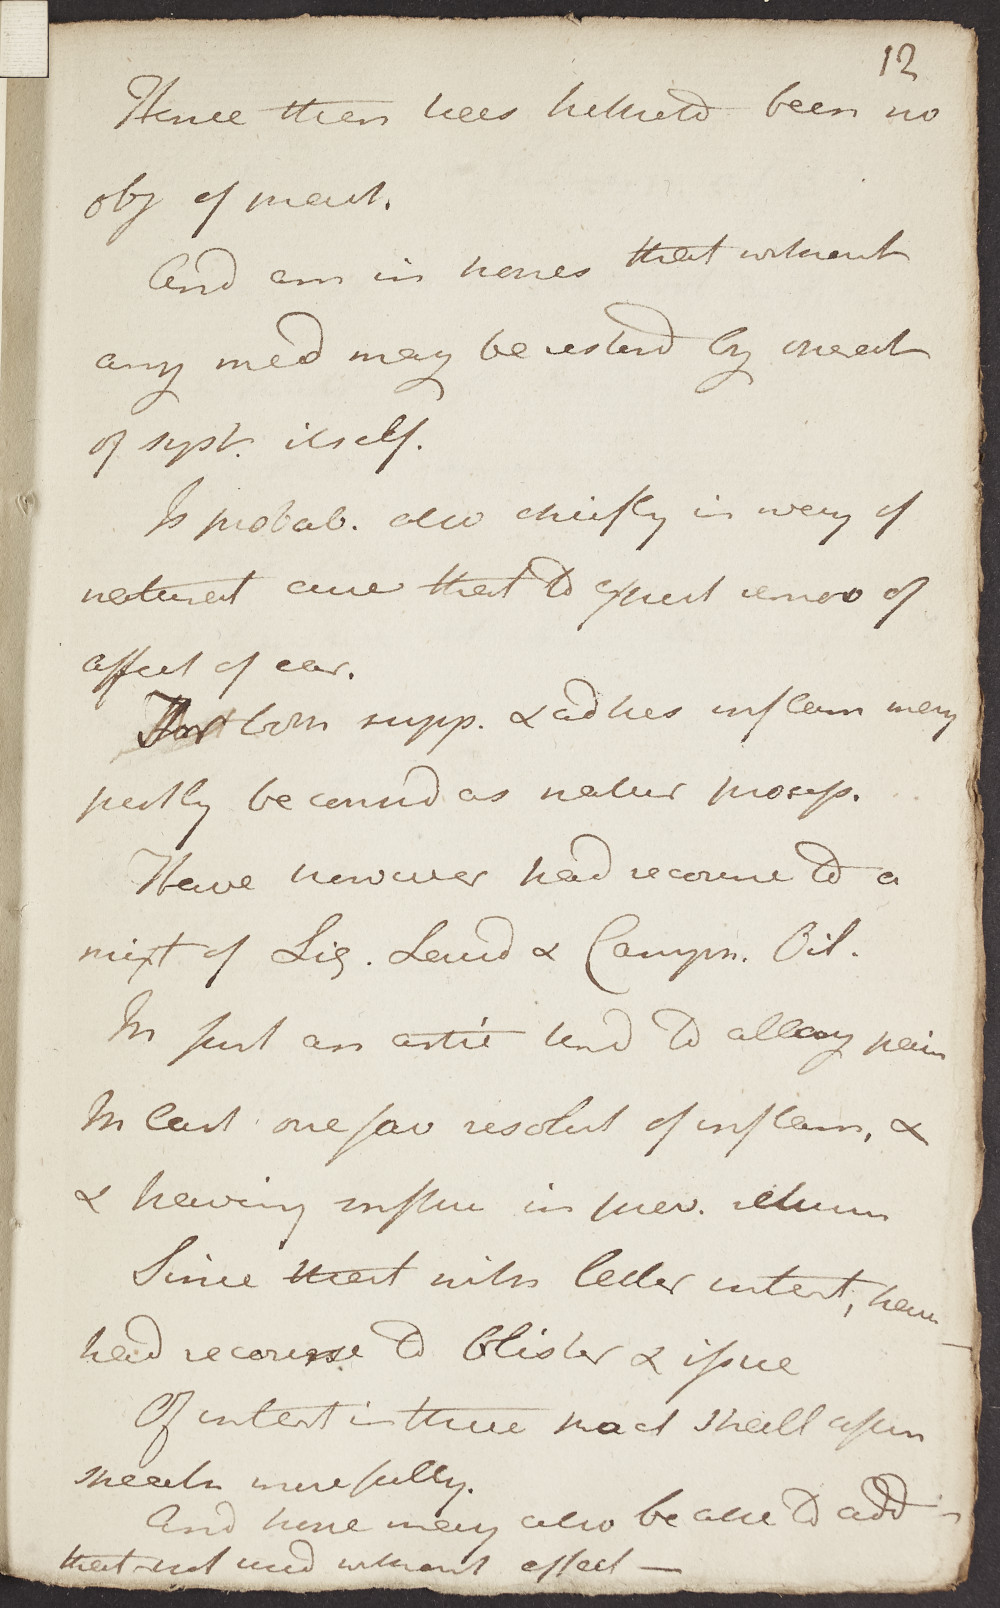 12
Hence then has hitherto been no
obj of ment.
And am in hopes that without
any med may be restord by
of syst. itself.
Is probab. also chiefly in way of
natural cure that to expect remov of
affect of ear.
For both supp. & adhes inflam may
partly be consid as natur process.
Have however had recourse to a
mixt of Liq. Laud & Camph. Oil.
In first an artic tend to allay pain
In last one fav resolut of inflam, &
& having influ in prev. return
Since that with latter intent, have
had recourse to blister & issue
Of intent in these pract shall after
speak more fully.
And hope may also be able to add
that not used without effect —